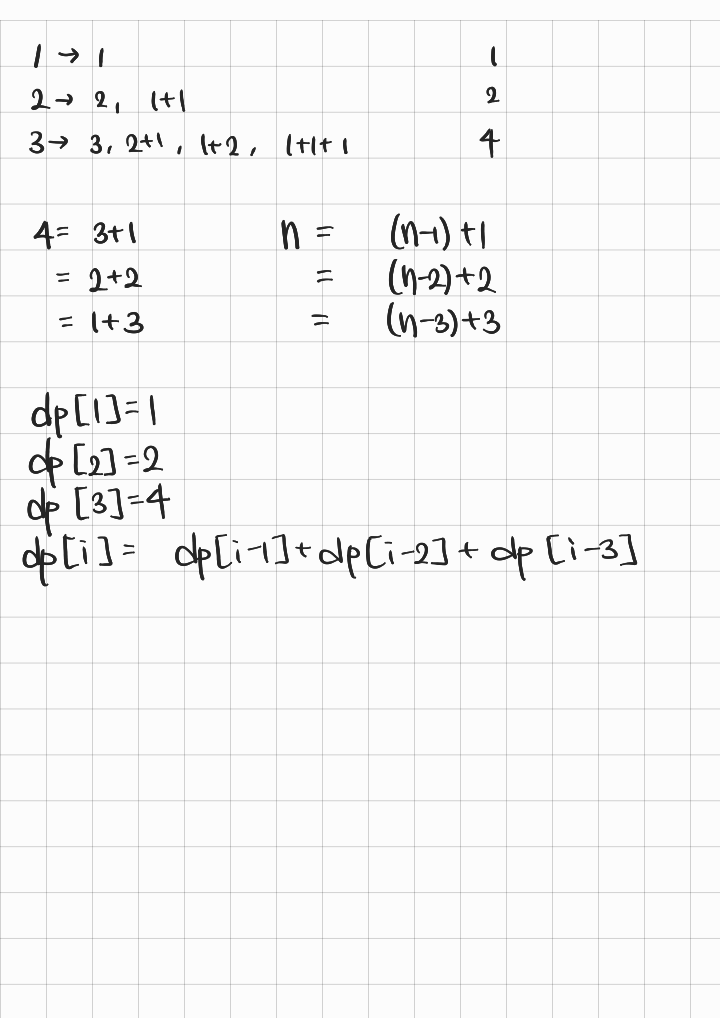 1 → 1 1
2 → 2, 1+1 2
3 → 3, 2+1, 1+2, 1+1+1 4
4 = 3+1 n = (n-1)+1
= 2+2 = (n-2)+2
= 1+3 = (n-3)+3
dp[1]=1
dp[2]=2
dp[3]=4
dp[i] = dp[i-1]+dp[i-2]+dp[i-3]